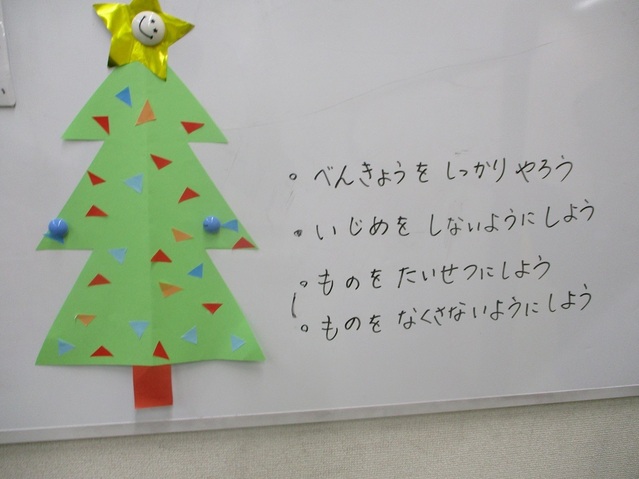 。べんきょうを しっかり やろう
・いじめを しないように しよう
。ものを たいせつにしよう
。ものを なくさないように しよう